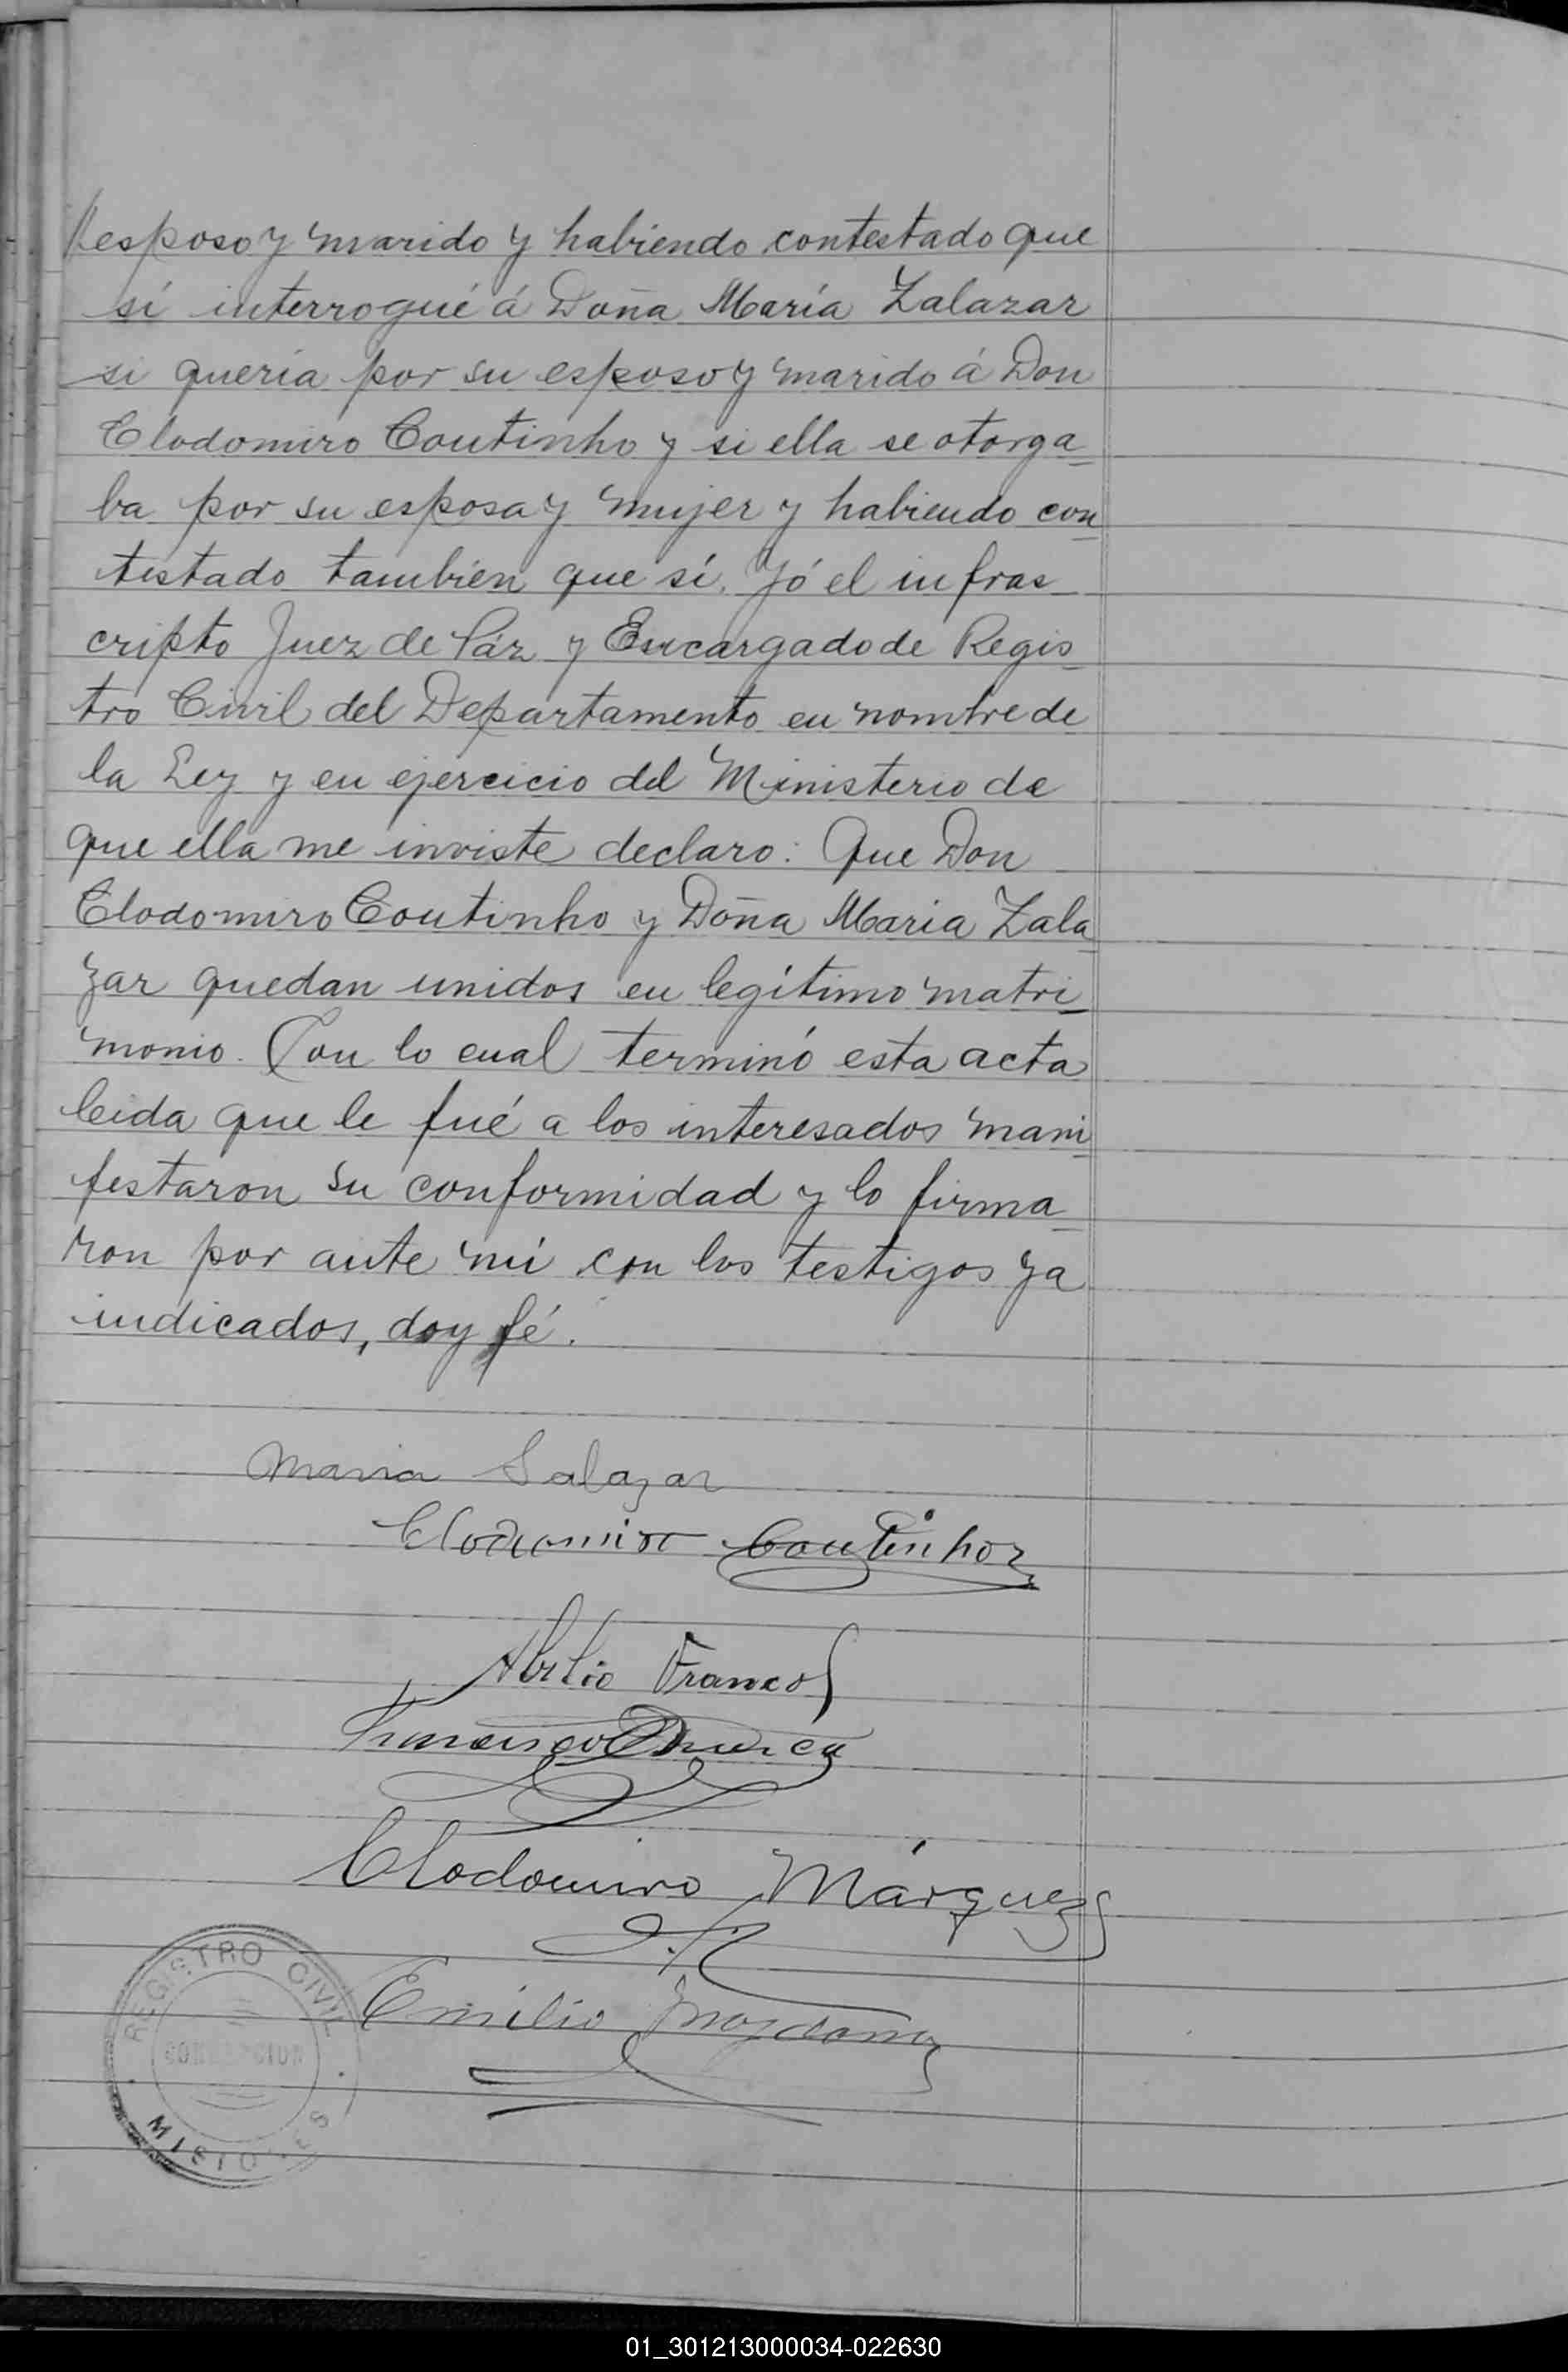 esposo y marido y habiendo contestado que
sí interrogué á Doña María Zalazar
si quería por su esposo y marido á Don
Clodomiro Coutinho y si ella se otorga
ba por su esposa y mujer y habiendo con
testado tambien que sí. Yó el infras
cripto Juez de Páz y Encargado de Regis
tro Civil del Departamento en nombre de
la Ley y en ejercicio del Ministerio de
que ella me inviste declaro: Que Don
Clodomiro Coutinho y Doña Maria Zala
zar quedan unidos en legítimo matri
monio. Con lo cual terminó esta acta
leida que le fué a los interesados mani
festaron su conformidad y lo firma
ron por ante mi con los testigos ya
indicados, doy fé.
Maria Salazar
Clodomiro Coutinho
Abilio Franco
Francisco
Clodomiro Márquez
Emilio
REGISTRO CIVIL
MISIONES
01_301213000034-022630